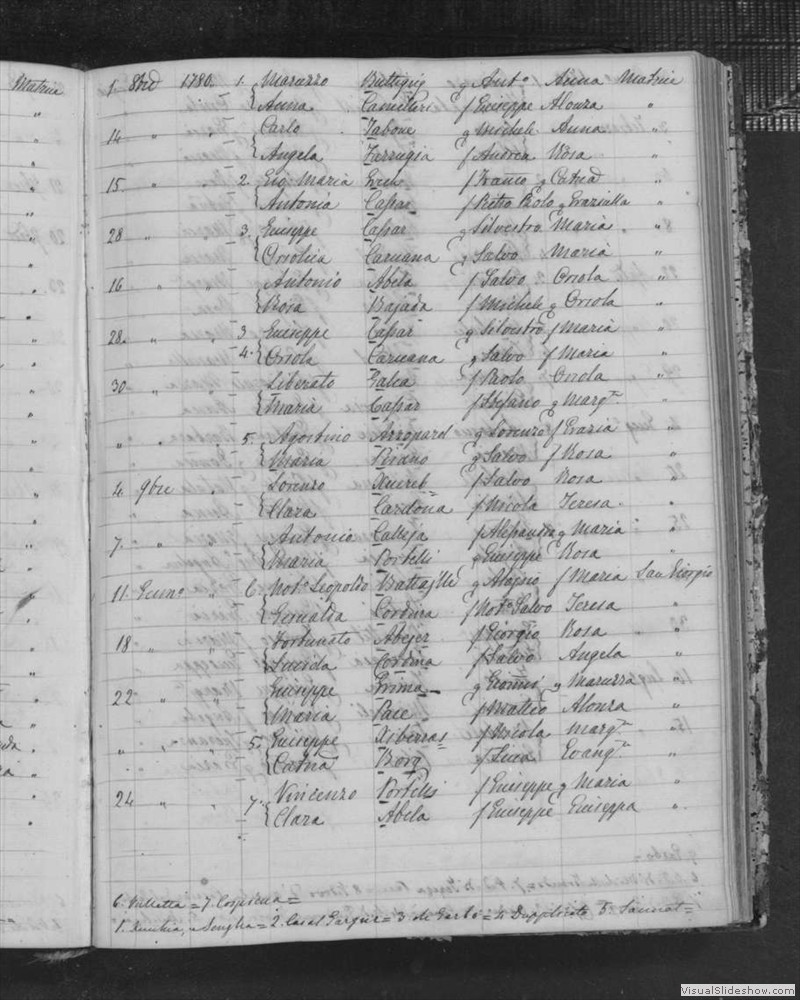 Matrice
1. 8bre 1780. 1. Maruzzo Buttigieg q Ant.o Anna Matrice
Anna Camilleri f Giuseppe Alonza "
14 " Carlo Tabone q Michele Anna "
Angela Farrugia f Andrea Rosa "
15 " 2. Gio Maria f q Catna
Antonia Caspar f Bolo q Graziulla "
28 " 3. Giuseppe Caspar q Silvestro Maria "
Orsolica Caruana q Salvo Maria "
16 " Antonio Abela f Salvo Orsola "
Rosa Bajada f Michele q Orsola "
28. " 3 Giuseppe Caspar q Silvestro f Maria "
4. Orsola Caruana q Salvo f Maria "
30 " Liberato Galea f Bolo Orsola "
Maria Caspar f Stefano q Marg.ta "
" " 5. Agostino q Lorenzo f Grazia "
Maria Pisano q Salvo f Rosa "
4. 9bre " Lorenzo Xuereb f Salvo Rosa "
Clara Cardona f Nicola Teresa "
7. " Antonio Calleja f q Maria "
Maria Portelli q Giuseppe Rosa "
11. Genn.o " 6. Not.o Leopoldo q Aloysio f Maria San Giorgio
Cordina f Not.o Salvo Teresa "
18 " " Fortunato Abejer f Giorgio Rosa "
Cordina f Salvo Angela "
22 " " Giuseppe Prima q q Maruzza "
Maria Pace f Matteo Alonza "
" " " 5. Giuseppe Xiberras f Nicola Marg.ta "
Catna Borg q Luca Evang.ta "
24 " " 7. Vincenzo Portelli f Giuseppe q Maria "
Clara Abela f Giuseppe Giuseppa "
6. Valletta = 7. Cospicua =
1. Senglea = 2. Casal Gargur = 3. de Garbo = 4. Dupplicato 5. Sannat =
VisualSlideshow.com